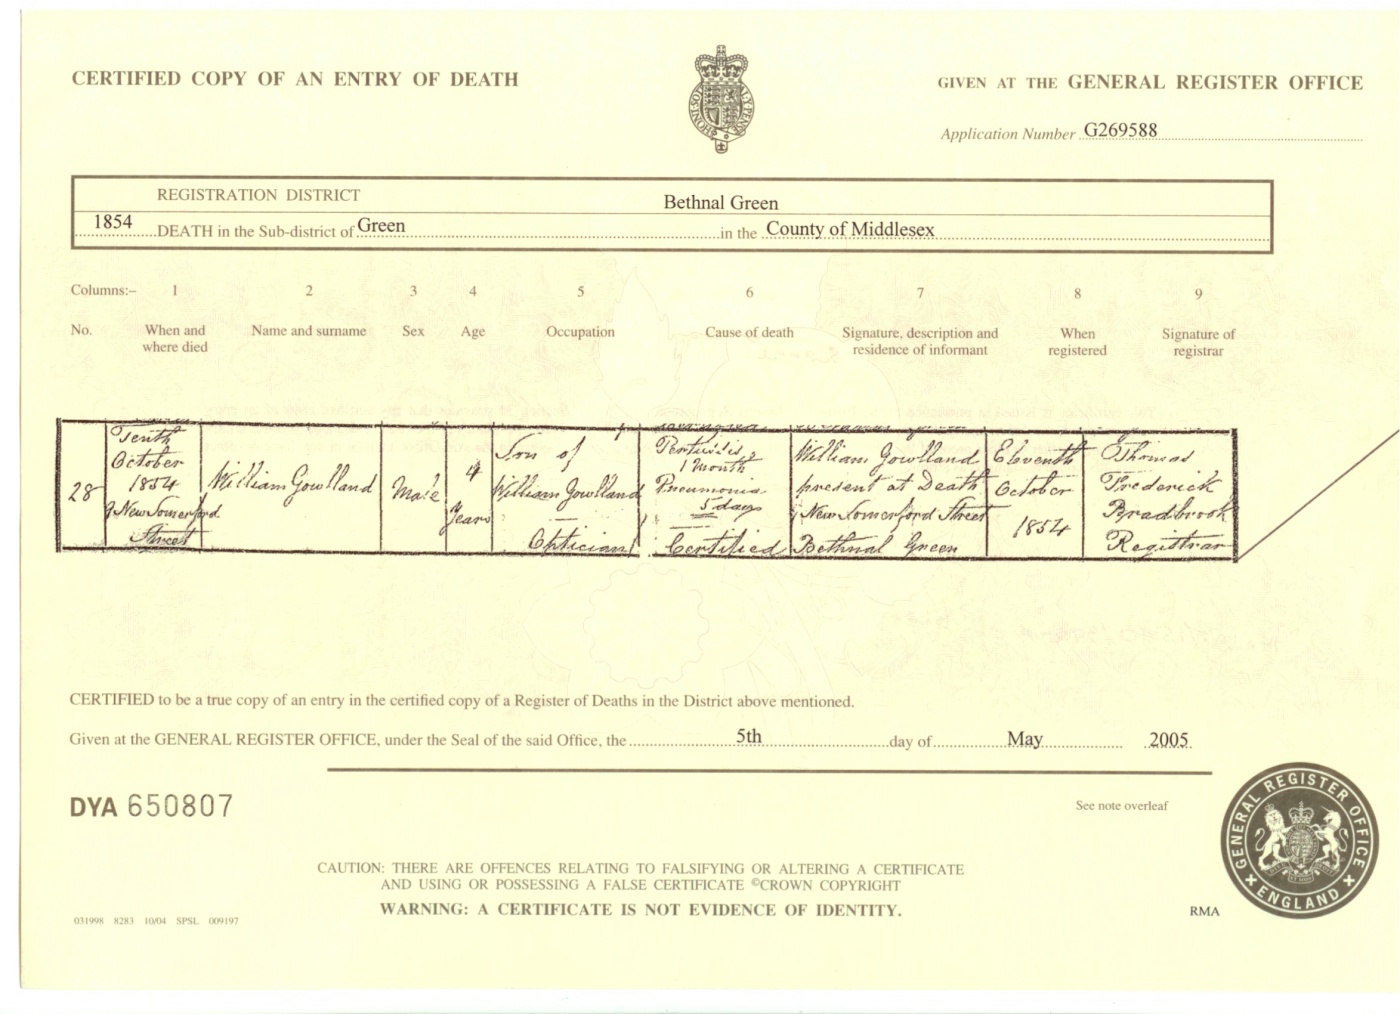 CERTIFIED COPY OF AN ENTRY OF DEATH
GIVEN AT THE GENERAL REGISTER OFFICE
Application Number G269588
REGISTRATION DISTRICT Bethnal Green
1854 DEATH in the Sub-district of Green in the County of Middlesex
Columns:- 1 2 3 4 5 6 7 8 9
No. When and where died Name and surname Sex Age Occupation Cause of death Signature, description and residence of informant When registered Signature of registrar
28
Tenth
October
1854
New Somerford
Street
William Gowlland
Male
4
Years
Son of
William Gowlland
Optician
Pertussis
1 Month
Pneumonia
5 days
Certified
William Gowlland
present at Death
New Somerford Street
Bethnal Green
Eleventh
October
1854
Thomas
Frederick
Bradbrook
Registrar
CERTIFIED to be a true copy of an entry in the certified copy of a Register of Deaths in the District above mentioned.
Given at the GENERAL REGISTER OFFICE, under the Seal of the said Office, the 5th day of May 2005
DYA 650807
See note overleaf
CAUTION: THERE ARE OFFENCES RELATING TO FALSIFYING OR ALTERING A CERTIFICATE
AND USING OR POSSESSING A FALSE CERTIFICATE ©CROWN COPYRIGHT
WARNING: A CERTIFICATE IS NOT EVIDENCE OF IDENTITY.
031998 8283 10/04 SPSL 009197
RMA
GENERAL REGISTER OFFICE
ENGLAND